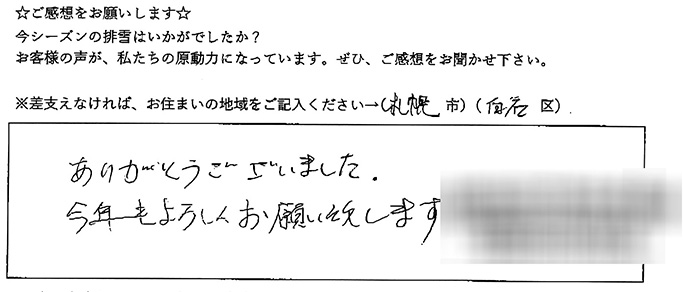 ☆ご感想をお願いします☆
今シーズンの排雪はいかがでしたか？
お客様の声が、私たちの原動力になっています。ぜひ、ご感想をお聞かせ下さい。
※差支えなければ、お住まいの地域をご記入ください→(札幌 市) (白石 区)
ありがとうございました.
今年もよろしくお願い致します